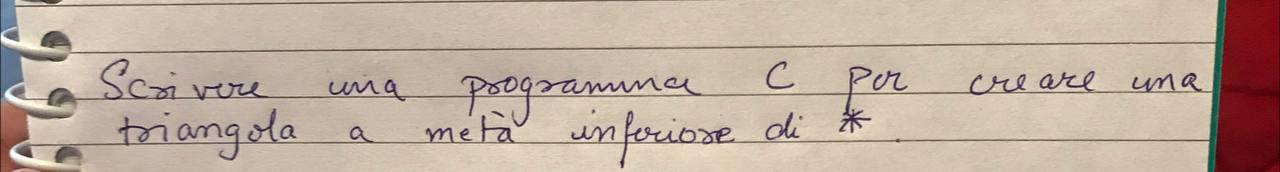 Scrivere una programma C per creare una
triangola a metà inferiore di *